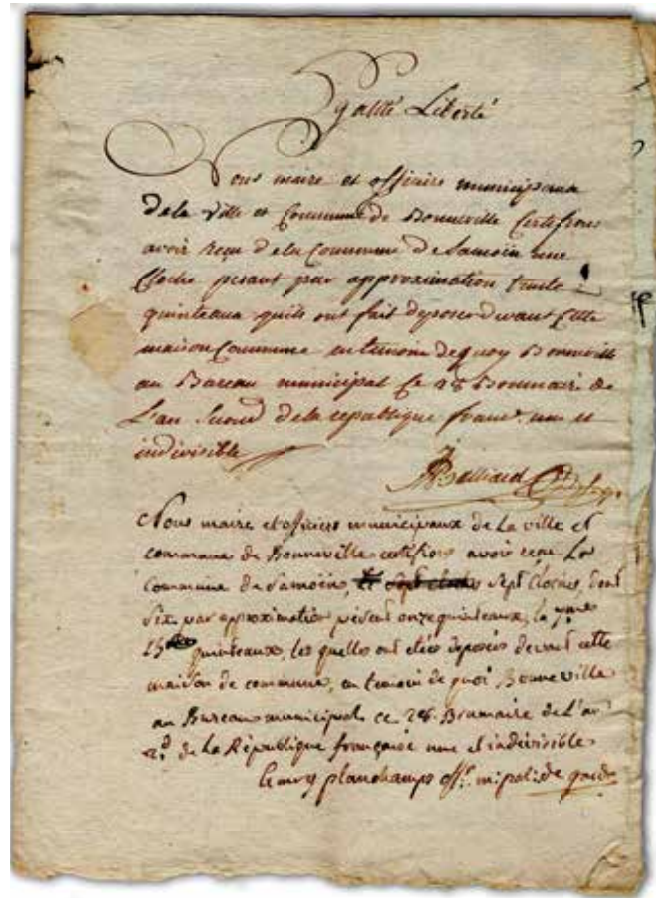 Egalité Liberté
Nous maire et officiers municipaux
de la ville et Commune de Bonneville Certifions
avoir reçu de la Commune de Samoën une
Cloche pesant par approximation trente
quinteaux quils ont fait deposer devant Cette
maison Commune en temoin de quoy Bonneville
au Bureau municipal Ce 28 Brumaire de
L'an Second de la republique franc.e une et
indivisible
Nous maire et officiers municipaux de la ville et
commune de Bonneville certifions avoir reçu La
commune de Samoën, sept cloches, dont
six par approximation pèsent onze quinteaux, la 7me
15 quinteaux, les quelles ont étées déposés devant cette
maison de commune, en temoin de quoi Bonneville
au Bureau municipal ce 28. Brumaire de L'an
2.d de la République française une et indivisible
planchamps off.r m:pal: de garde